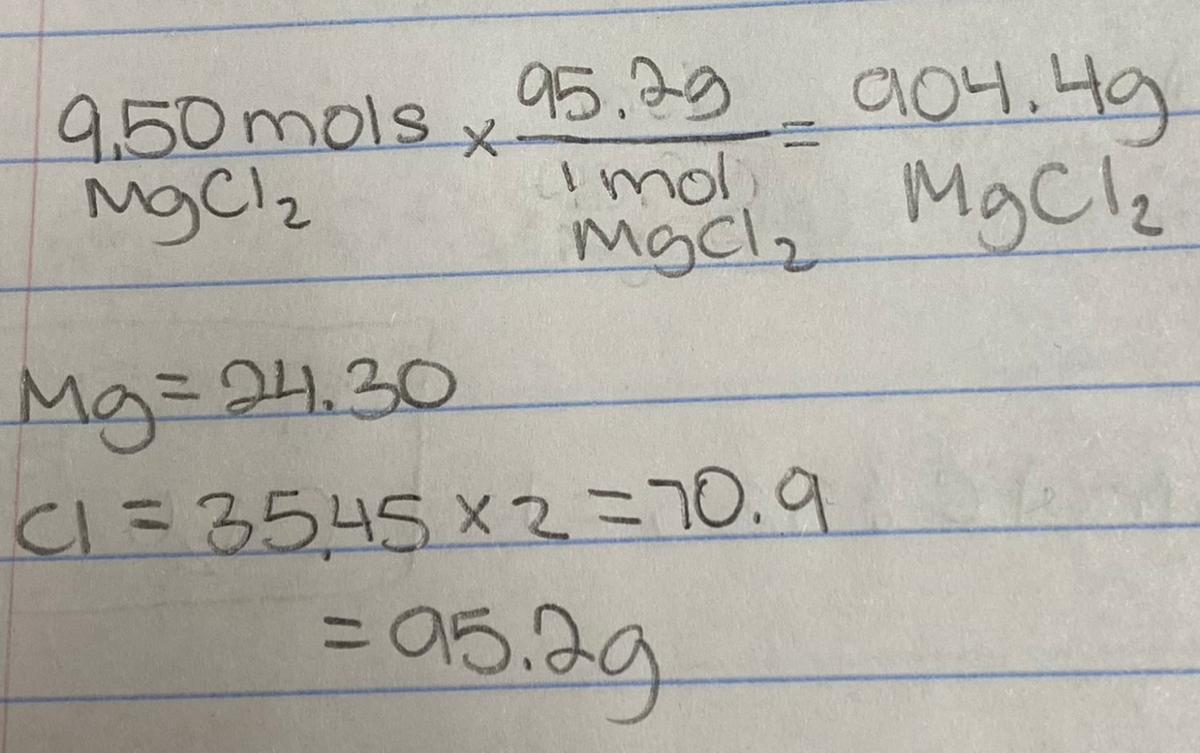 9.50 mols × 95.2g / 1 mol MgCl₂ = 904.4g
MgCl₂ MgCl₂
Mg = 24.30
Cl = 35.45 × 2 = 70.9
= 95.2g